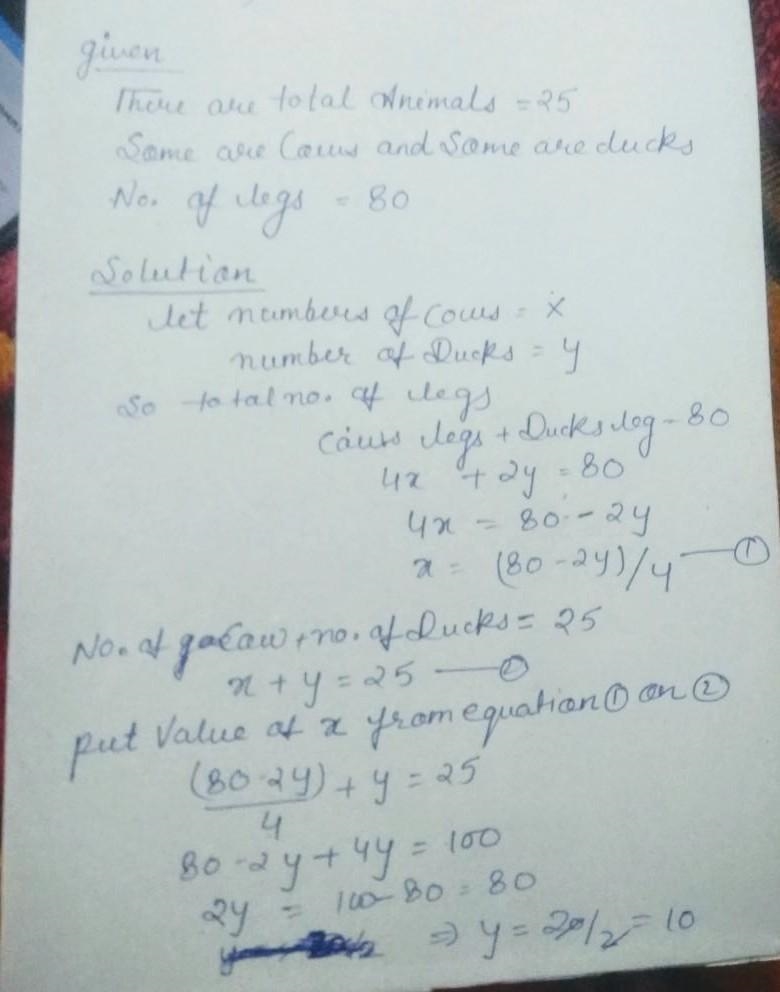 given
There are total Animals = 25
Some are Cows and Some are ducks
No. of legs = 80
Solution
let numbers of cows = x
number of Ducks = y
So total no. of legs
Cows legs + Ducks leg = 80
4x + 2y = 80
4x = 80 - 2y
x = (80 - 2y)/4 — ①
No. of Cow + no. of Ducks = 25
x + y = 25 — ②
put Value of x from equation ① on ②
(80-2y)/4 + y = 25
80 - 2y + 4y = 100
2y = 100 - 80 = 80
⇒ y = 20/2 = 10